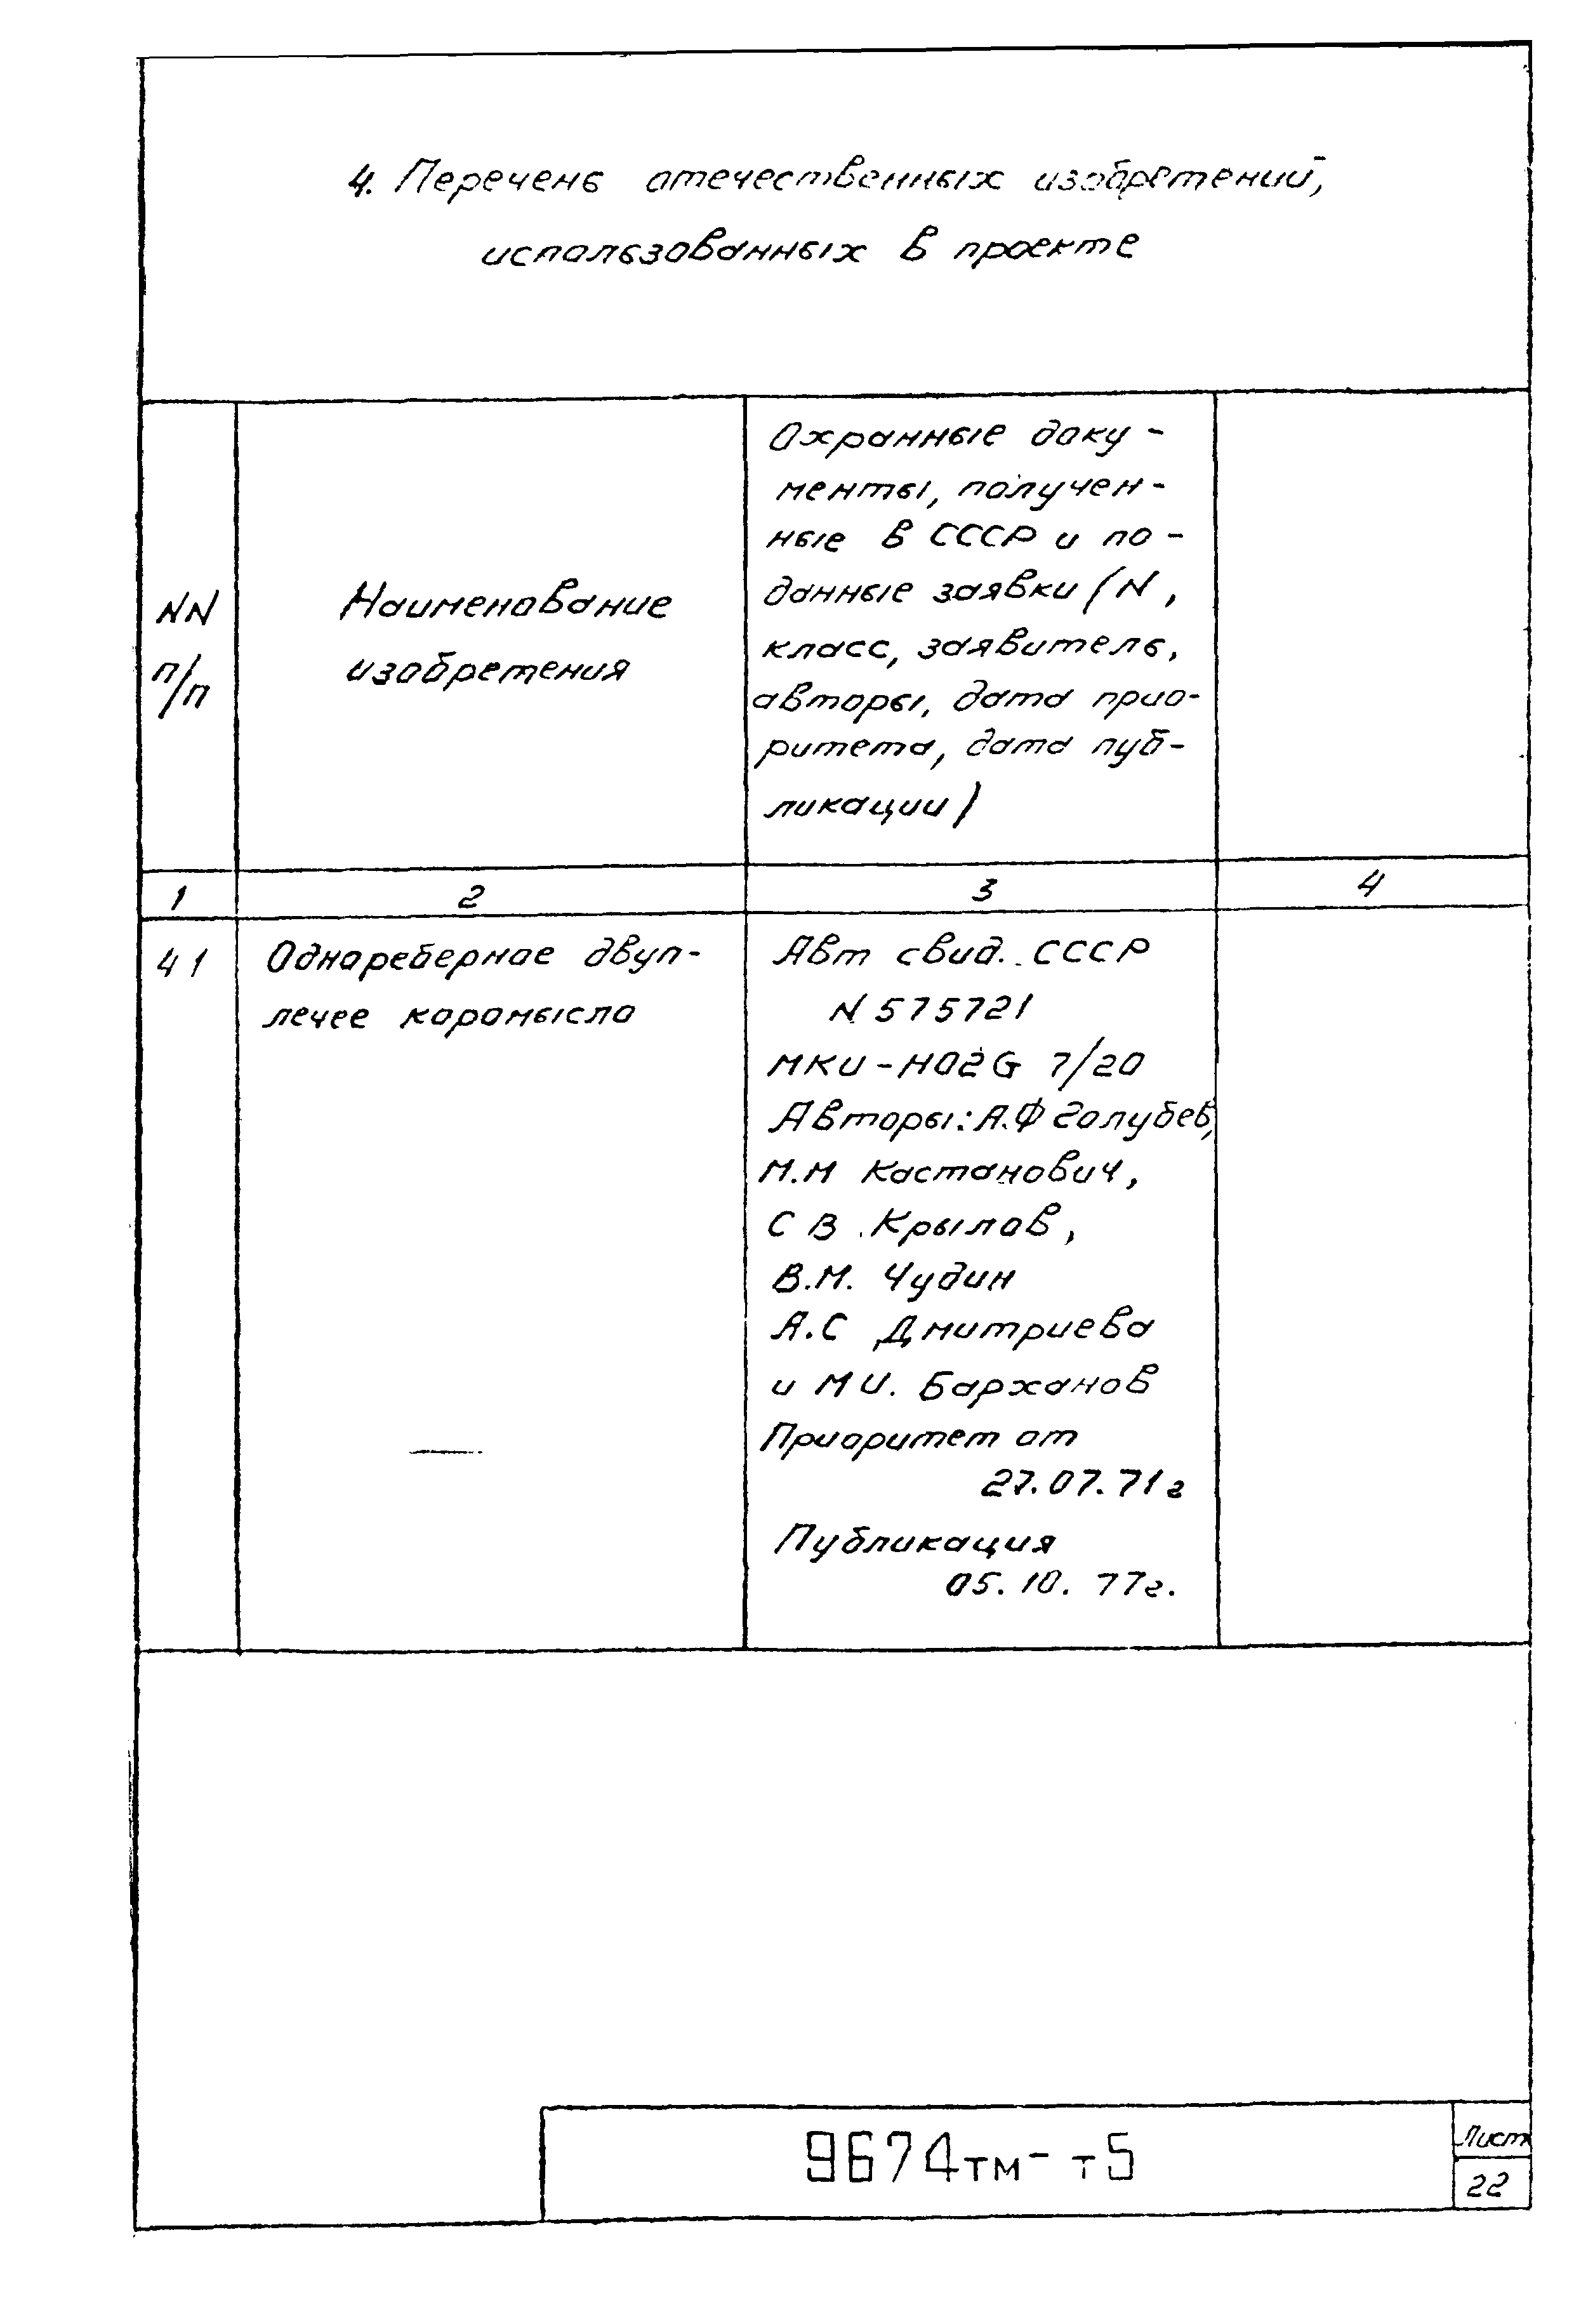 4. Перечень отечественных изобретений,
использованных в проекте
NN
п/п
Наименование
изобретения
Охранные доку-
менты, получен-
ные в СССР и по-
данные заявки (N,
класс, заявитель,
авторы, дата прио-
ритета, дата пуб-
ликации)
1
2
3
4
4 1
Однореберное двуп-
лечее коромысло
Авт свид. СССР
N 575721
МКИ - H02G 7/20
Авторы: А.Ф Голубев,
М.М Кастанович,
С В. Крылов,
В.М. Чудин
А.С Дмитриева
и М И. Барханов
Приоритет от
27.07.71г
Публикация
05.10.77г.
9674тм- т5
Лист
22